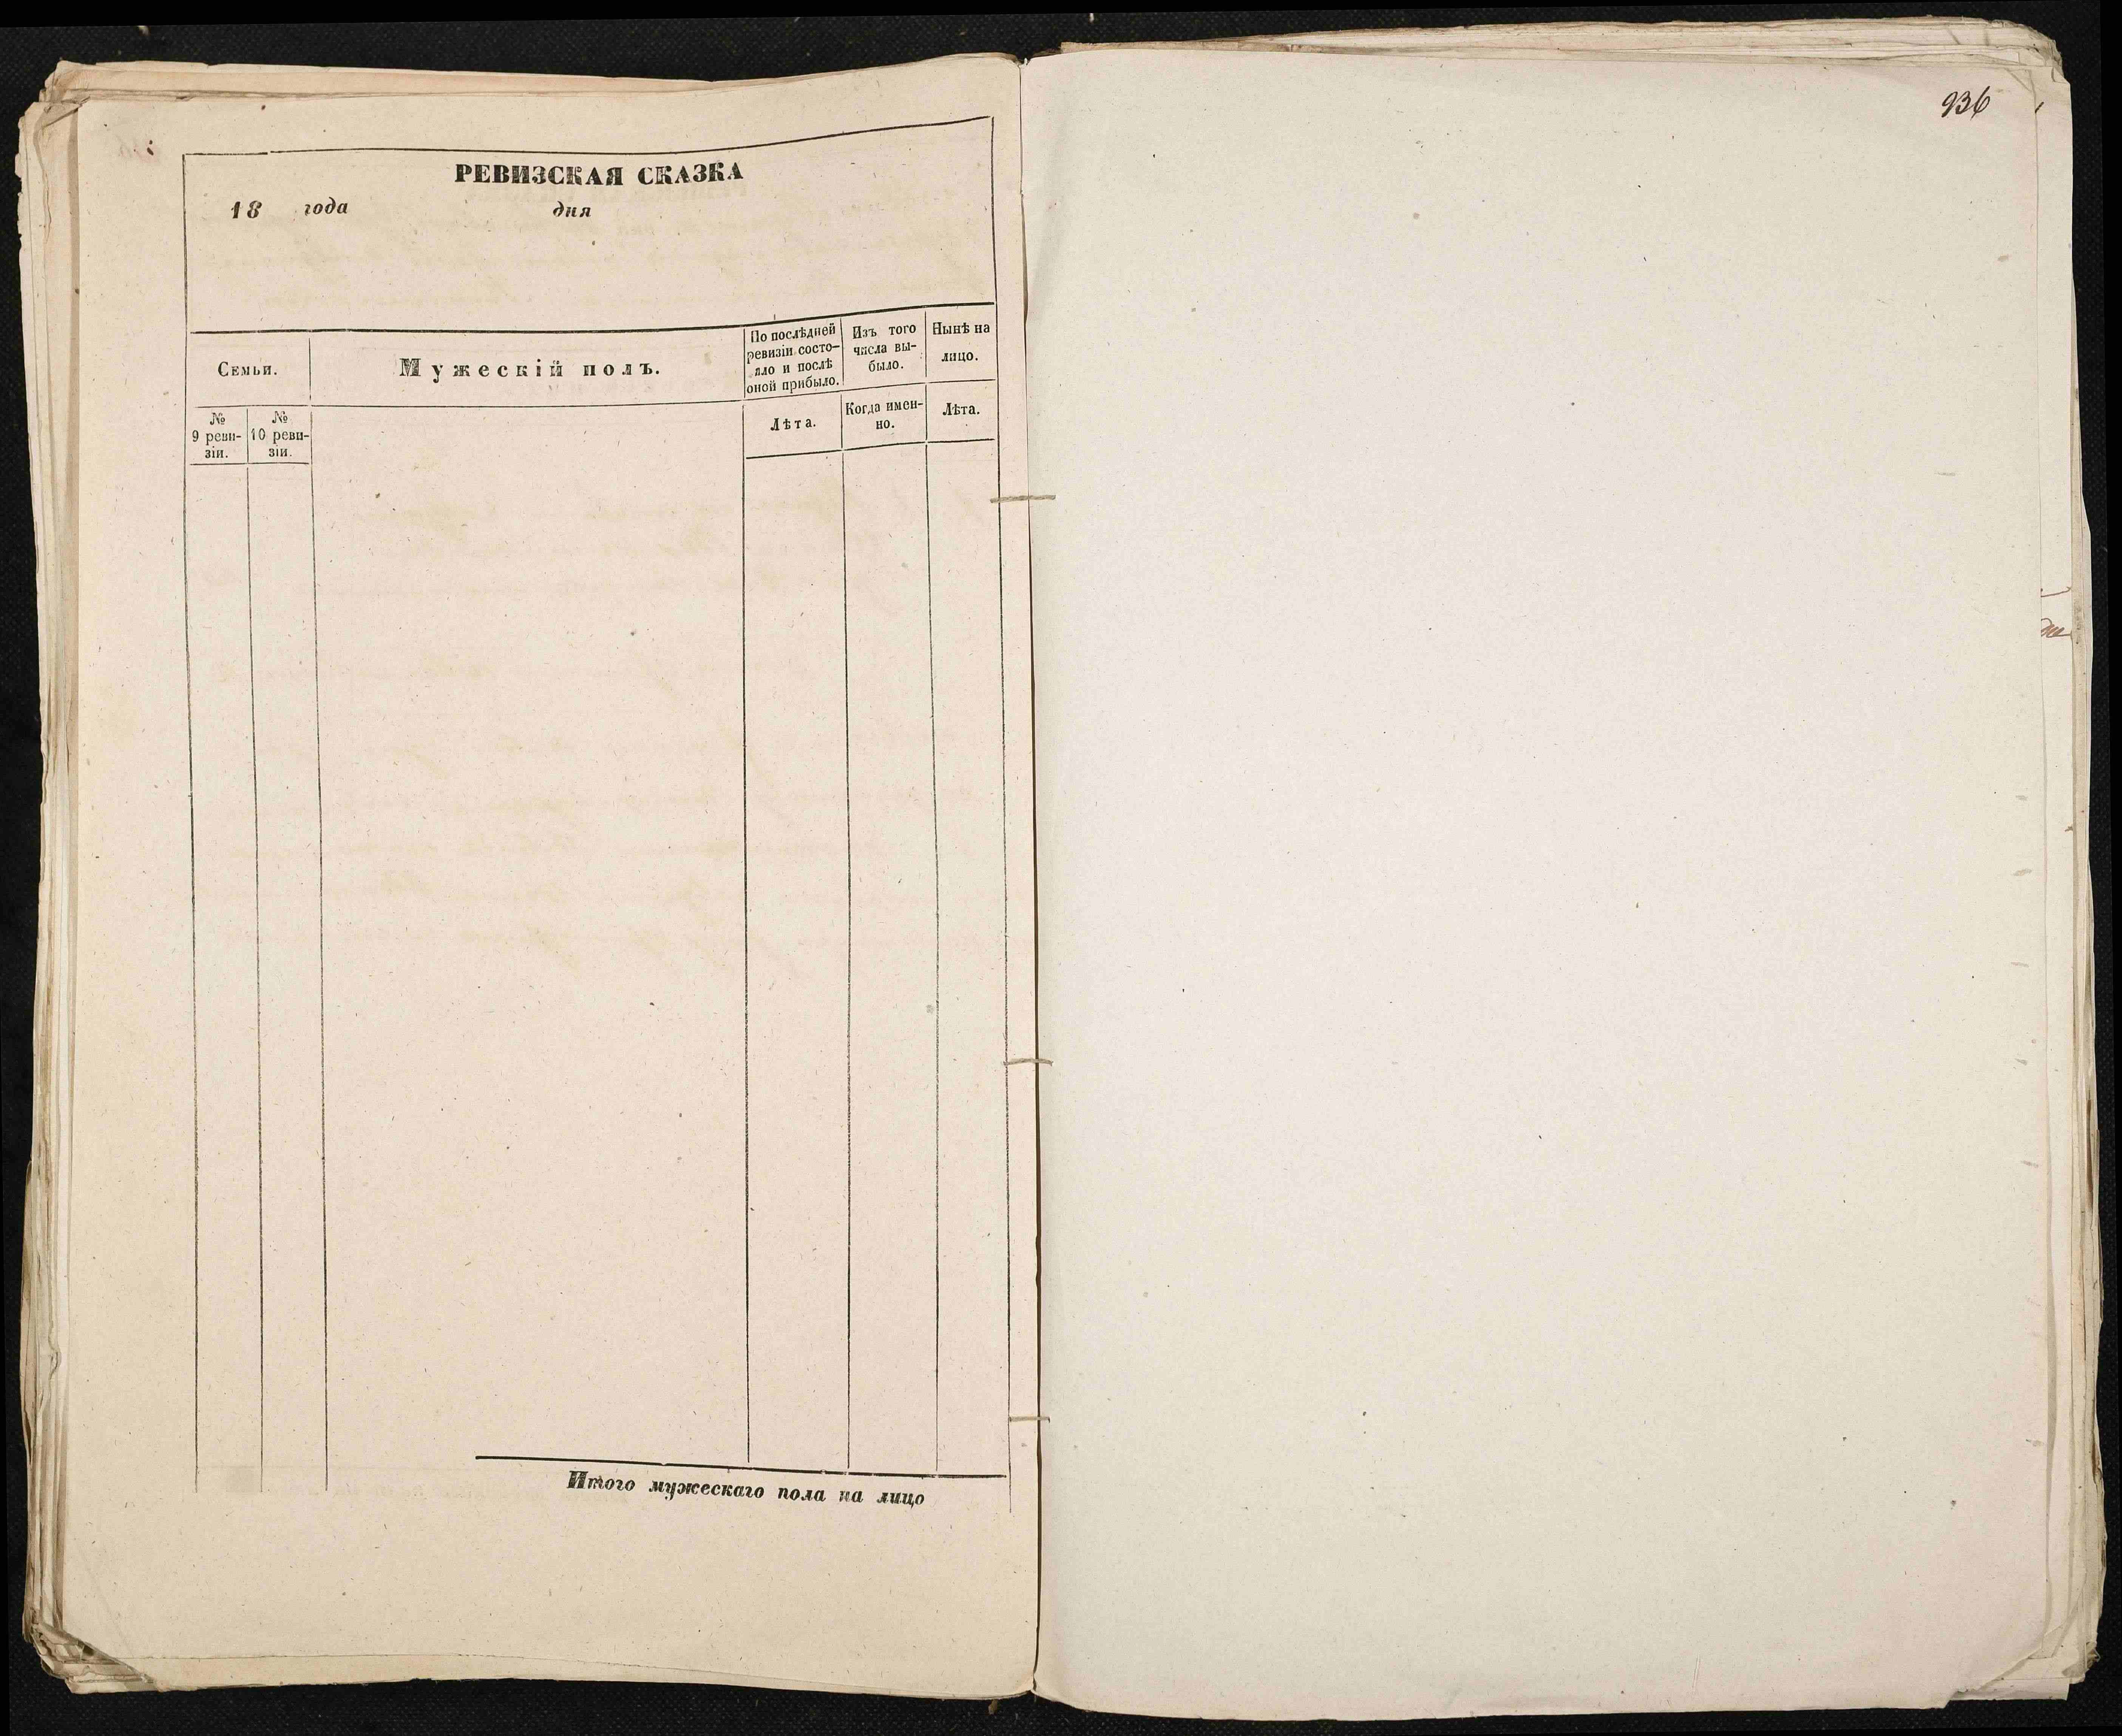 РЕВИЗСКАЯ СКАЗКА
18 года дня
Семьи.
Мужескій полъ.
По послѣдней
ревизіи состо-
яло и послѣ
оной прибыло.
Изъ того
числа вы-
было.
Нынѣ на
лицо.
№
9 реви-
зіи.
№
10 реви-
зіи.
Лѣта.
Когда имен-
но.
Лѣта.
Итого мужескаго пола на лицо
936